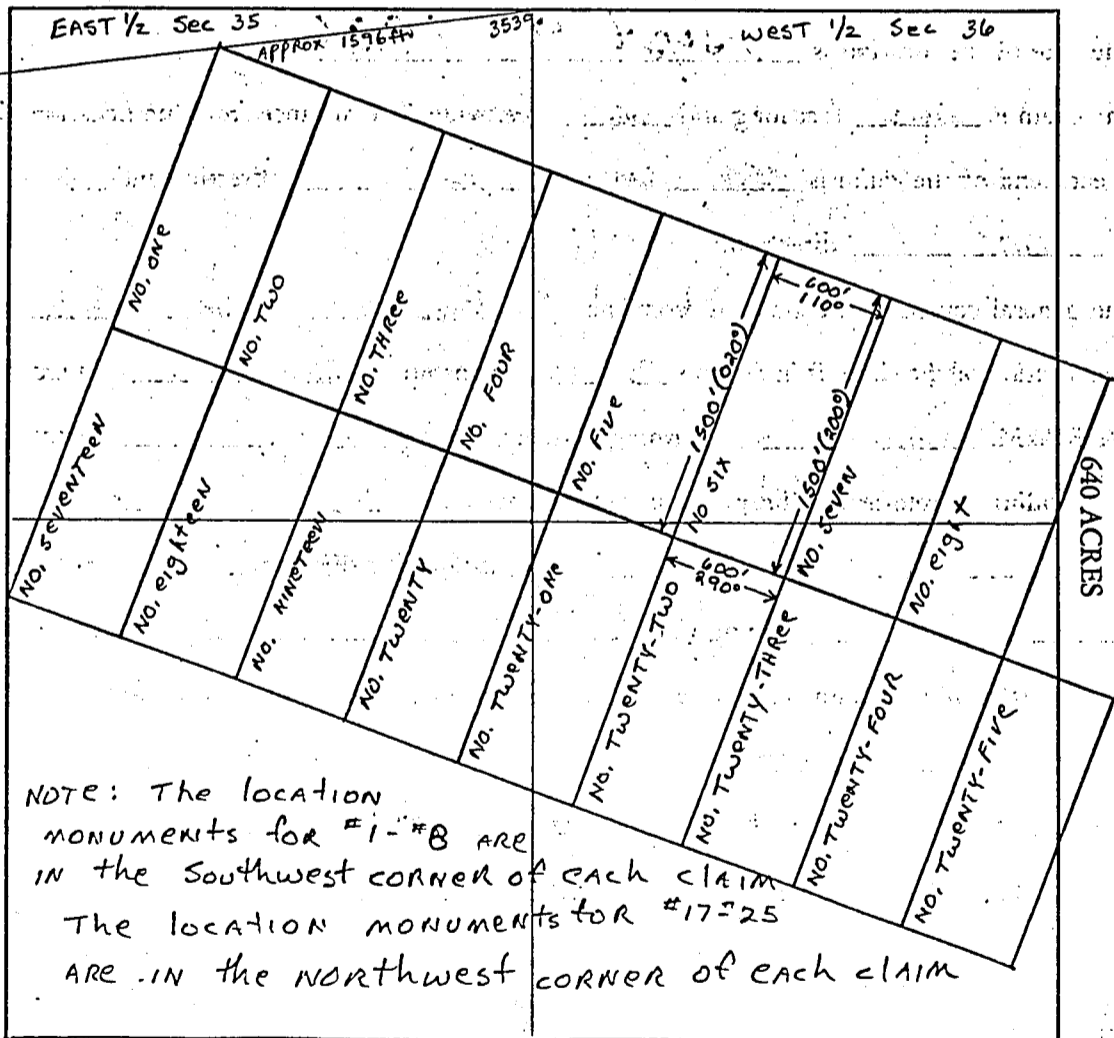 EAST 1/2 Sec 35
3539
WEST 1/2 Sec 36
APPROX 1596 ft
NO. ONE
NO. TWO
NO. THREE
NO. FOUR
NO. FIVE
NO SIX
NO. SEVEN
NO. eight
600'
110°
1500' (020°)
1500' (200°)
600'
290°
NO. SEVENTEEN
NO. eighteen
NO. NINETEEN
NO. TWENTY
NO. TWENTY-ONE
NO. TWENTY-TWO
NO. TWENTY-THREE
NO. TWENTY-FOUR
NO. TWENTY-FIVE
640 ACRES
NOTE: The location
monuments for #1-#8 ARE
IN the Southwest CORNER of EACH CLAIM
The location monuments for #17-#25
ARE IN the NORTHWEST CORNER of EACH CLAIM